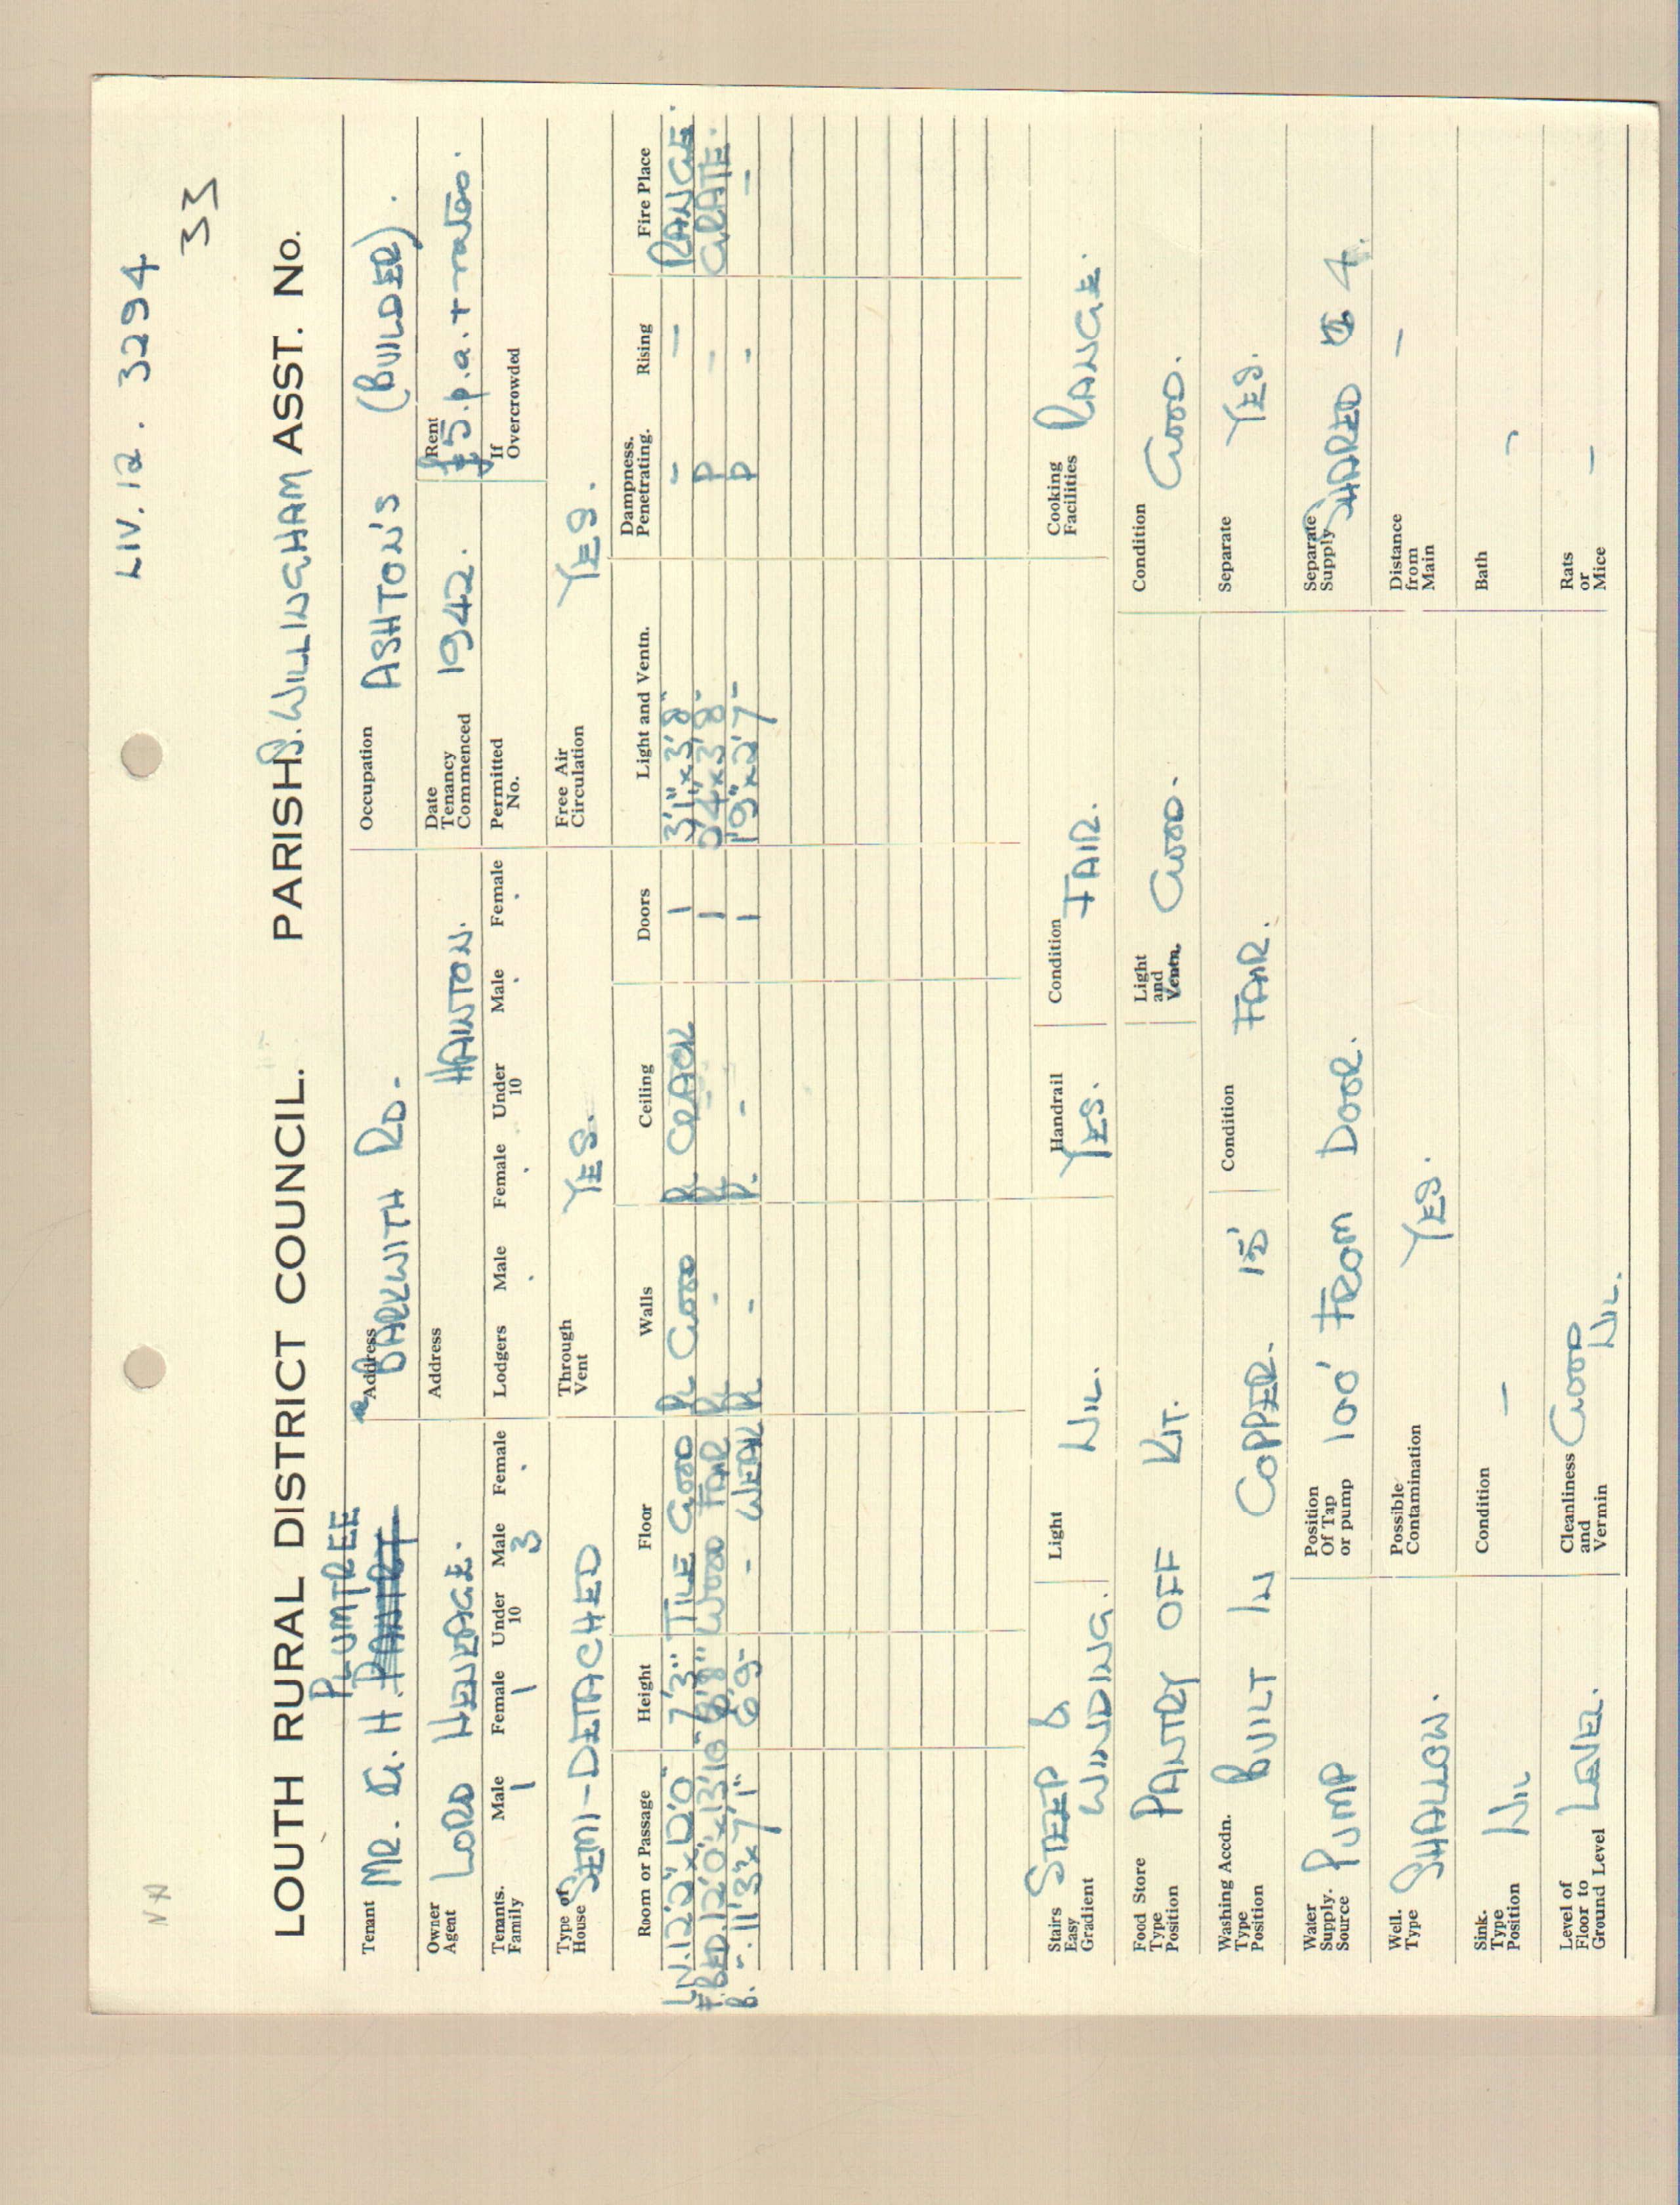 LIV. 12. 3294
33
LOUTH RURAL DISTRICT COUNCIL. PARISH S. WILLINGHAM ASST. No.
PLUMTREE
Tenant MR. G. H. Address BARKWITH RD. Occupation ASHTON'S (BUILDER).
Owner Agent LORD HENEAGE. Address HAINTON. Date Tenancy Commenced 1942. Rent £5. p.a. + rates.
Tenants. Family Male 1 Female 1 Under 10 Male 3 Female . Lodgers Male . Female . Under 10 Male . Female . Permitted No. If Overcrowded
Type of House SEMI-DETACHED Through Vent YES. Free Air Circulation YES.
Room or Passage Height Floor Walls Ceiling Doors Light and Ventn. Dampness. Penetrating. Rising Fire Place
LIV. 12'0" x 12'0" 7'3" TILE GOOD PL GOOD PL CRACK 1 3'1" x 3'8" - - RANGE.
F. BED. 12'0" x 13'10" 6'8" WOOD FAIR PL - PL 1 x 3'8" P - GRATE.
B. -. 11'3" x 7'1" 6'9" - WEAK PL - PL - 1 1'9" x 2'7" P - -
Stairs Easy Gradient STEEP & WINDING. Light NIL. Handrail YES. Condition FAIR. Cooking Facilities RANGE.
Food Store Type Position PANTRY OFF KIT. Light and Ventn. GOOD. Condition GOOD.
Washing Accdn. Type Position BUILT IN COPPER. 15' Condition FAIR. Separate YES.
Water Supply. Source PUMP Position Of Tap or pump 100' FROM DOOR. Separate Supply SHARED 4.
Well. Type SHALLOW. Possible Contamination YES. Distance from Main -
Sink. Type Position NIL Condition - Bath -
Level of Floor to Ground Level LEVEL. Cleanliness and Vermin GOOD NIL. Rats or Mice -